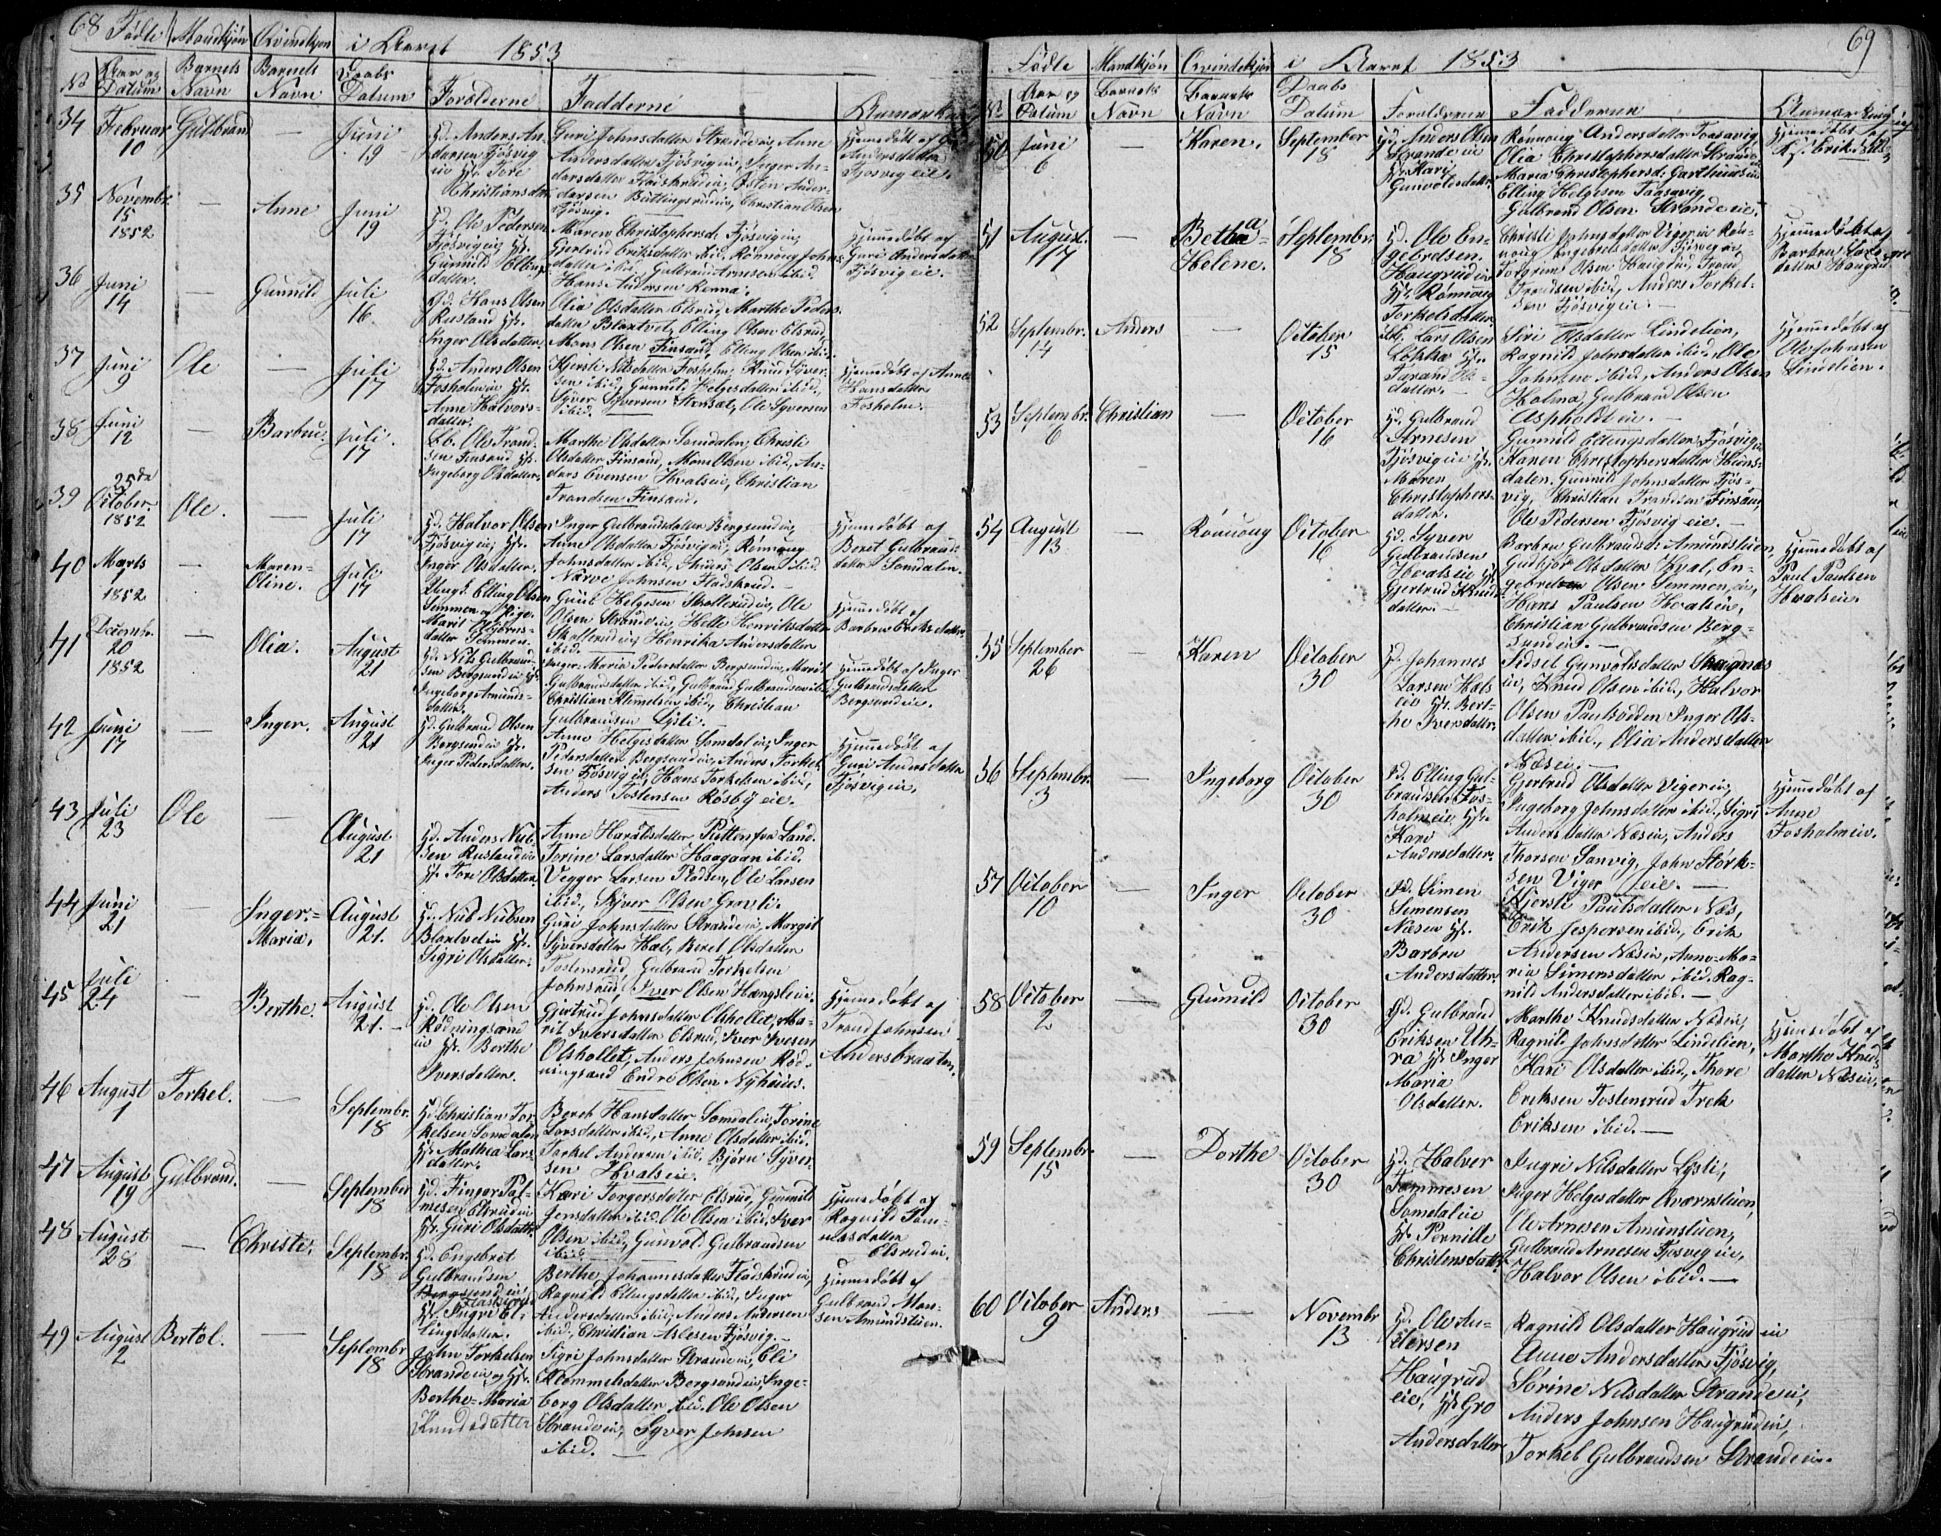 68 Födte Mandkjön Qvindekjön i Aaret 1853
No Aar og Datum Barnets Navn Barnets Navn Daabs Datum Forælderne Fadderne
34 Februar 10 Gulbrand — Juni 19
Hd. Anders An-
dersen Fjösvig
eie Hst. Tore
Christiansdatter
Guri Johnsdatter Anne
Andersdatter Fjösvigeie, Inger An-
dersdatter Östen Ander-
Christian Olsen
Fjösvig.
Hjemmedöbt af
Andersdatter
Fjösvigeie.
35 Novembr. 15 1852 — Anne Juni 19
Hd. Ole Pedersen
Fjösvigeie Hst.
Gunnild Ellings
datter.
Maren Christophersd: Fjösvigeie,
Gjertrud Eriksdatter ibid, Rönnoug Johns
datter ibid, Gulbrand Arnesen ibid.
Hans Andersen Renna.
Hjemmedöbt af
Guri Andersdatter
Fjösvigeie.
36 Juni 14 — Gunnild Juli 16
Hd. Hans Olsen
Rustand Hst.
Inger Olsdatter.
Olia Olsdatter Elsrud, Marthe Peders
datter Blaxtvet, Elling Olsen Elsrud,
Mons Olsen Finsand, Elling Olsen ibid.
37 Juni 9 Ole — Juli 17
Hd. Anders Olsen
Fosholmeie Hst.
Anne Halvors-
datter.
Kjersti Nilsdatter Fosholm, Knud Syver-
sen ibid, Gunnil Helgesdatter ibid,
Syver Syversen Ole Syversen
ibid.
Hjemmedöbt af Anne
Hansdatter
Fosholm.
38 Juni 12 — Barbru. Juli 17
Ole Trond-
sen Finsand Hst.
Ingeborg Olsdatter.
Marthe Olsdatter Somdalen, Christi
Olsdatter Finsand, Mons Olsen ibid, An-
ders Evensen Hvalseie, Christian
Trondsen Finsand.
39 25de October. 1852 Ole. — Juli 17
Hd. Halvor Olsen
Fjösvigeie Hst.
Inger Olsdatter.
Inger Gulbrandsdatter Bergsundeie,
Anne Olsdatter Fjösvigeie, Rönnoug
Johnsdatter ibid, Anders Olsen ibid.
Narve Johnsen Fladskrud.
Hjemmedöbt af
Beret Gulbrands-
datter Somdalen.
40 Marts 1 1852 — Maren-
Oline. Juli 17
Ungk. Elling Olsen
Semmen og Pige.
Marit
datter Semmen.
Guul Helgesen Skollerudeie, Ole
Olsen Strandeie, Helle Henriksdatter
Skollerudeie, Henrika Andersdatter
ibid.
Hjemmedöbt af
Barbru Eriksdatter
41 Decembr. 20 1852 — Olia. August 21
Hd. Nils Gulbrand-
sen Bergsundeie Hst.
Ingeborg Amunds-
datter.
Inger Maria Pedersdatter Bergsundeie, Marit
Gulbrandsdatter ibid, Gulbrand Gulbrandsen ibid,
Christian Klemetsen ibid, Christian
Gulbrandsen Lysli.
Hjemmedöbt af Inger
Gulbrandsdatter
Bergsundeie.
42 Juni 17 — Inger. August 21
Hd. Gulbrand Olsen
Bergsundeie Hst.
Inger Pedersdatter.
Anne Helgesdatter Somdaleie, Inger
Pedersdatter Bergsundeie, Anders Torkel-
sen Fjösvigeie, Hans Torkelsen ibid,
Anders Tostensen Rösbyeie.
Hjemmedöbt af
Guri Andersdatter
Fjösvigeie.
43 Juli 23 Ole — August 21
Hd. Anders Niel-
sen Rustandeie
Hst. Tore Olsdatter.
Anne Haraldsdatter Putten fra Land.
Torine Larsdatter Haagaar ibid.
Vegger Larsen Pladsen, Ole Larsen
ibid, Syver Olsen Grøvli.
44 Juni 21 — Inger-
Maria. August 21.
Hd. Niels Nielsen
Blaxtvedeie Hst.
Sigri Olsdatter.
Guri Johnsdatter Strandeie, Margit
Syversdatter Hæl, Beret Olsdatter
Tostensrud, Gulbrand Torkelsen
Johnsrud, Iver Olsen Hængsleeie.
45 Juli 24 — Berthe. August 21.
Hd. Ole Olsen
Rödningsand
eie Hst. Berthe
Iversdatter.
Gjertrud Johnsdatter Olshollet, Ma-
rit Iversdatter Elsrud, Iver Iversen
Olshollet, Anders Johnsen Röd-
ningsand Endre Olsen Nyhuus.
Hjemmedöbt af
Trond Johnsen
Andersbraaten.
46 August 1 Torkel. — Septembr. 18
Hd. Christian Tor-
kelsen Somdalen
Hst. Mathea Lars-
datter.
Beret Hansdatter Somdaleie, Torine
Larsdatter ibid, Anne Olsdatter ibid.
Torkel Andersen ibid. Björn Syver-
sen Hvalseie.
47 August 19 Gulbrand. — September 18
Hd. Finger Tol-
mesen Elsrudeie
Hst. Guri Olsdatter.
Kari Torgersdatter Elsrud, Gunnild
Jensdatter ibid. Ole Olsen ibid, Iver
Olsen ibid, Gunvol. Gulbrandsen
ibid.
Hjemmedöbt af
Ragnild Tom-
masdatter
Elsrudeie.
48 August 28 — Christi. Septembr. 18
Hd. Engebret
Gulbrandsen
Hst. Ingri El-
lingsdatter.
Berthe Johannesdatter Fladskrudeie,
Ragnild Ellingsdatter ibid, Inger
Andersdatter ibid, Anders Andersen
ibid, Christian Aslesen Fjösvig.
Hjemmedöbt af
Gulbrand Mon-
sen Amundslien.
49 August 2 Bertol. — Septembr 18
John Torkelsen
Strandeie og Hst.
Berthe-Maria
Knudsdatter
Sigri Johnsdatter Strandeie, Eli
Klemmetsdatter Bergsundeie, Inge-
borg Olsdatter ibid. Ole Olsen
Strandeie, Syver Johnsen
ibid.
69
Födte Mandkjön Qvindekjön i Aaret 1853
No Aar og Datum Barnets Navn Barnets Navn Daabs Datum Forælderne Fadderne Anmærkning
50 Juni 6 — Karen. September 18
Hd. Anders Olsen
Strandeie
Hst. Kari
Gunvolsdatter.
Rönnoug Andersdatter Taasavig
Olia Christophersdatter Strand
Maria Christophersd: Garthuuseie
Elling Helgesen Taasavig.
Gulbrand Olsen Strandeie.
Hjemmedöbt af
51 August. 17 — Betha-
Helene. Septembr. 18
Hd. Ole En-
gebretsen.
Haugrudeie
Hst. Rönnoug
Torkelsdatter.
Christi Johnsdatter Vigereie Rön-
noug Engebretsdatter Fjösvigeie
Torgrim Olsen Haugrud, Trond
Trondsen ibid, Anders Torkel-
sen Fjösvigeie.
Hjemmedöbt af
Barbru Lars-
datter Haugrud
52 Septembr. 14 Anders — October 15
Lars Olsen
Lökka Hst.
Tarand
datter.
Siri Olsdatter Lindelien,
Ragnild Johnsdatter ibid, Ole
Johnsen ibid, Anders Olsen
Holma, Gulbrand Olsen
Aspholdteie.
Hjemmedöbt af
Ole Johnsen
Lindelien.
53 Septembr. 6 Christian — October 16
Hd. Gulbrand
Arnesen
Fjösvigeie Hst.
Maren
Christophers-
datter.
Gunnild Ellingsdatter Fjösvig
Karen Christophersdatter Heins-
dalen. Gunnild Johnsdatter Fjös-
vig, Christian Trondsen Finsand,
Ole Pedersen Fjösvigeie.
54 August 13 — Rönnoug October 16
Hd. Syver
Gulbrandsen
Hvalseie Hst.
Gjertrud Knuds-
datter.
Barbru Gulbrandsd: Amundslien,
Gudbjör Olsdatter Hval, En-
gebret Olsen Semmeneie,
Hans Paulsen Hvalseie,
Christian Gulbrandsen Berg-
sundeie.
Hjemmedöbt af
Paul Paulsen
Hvalseie.
55 September 26 — Karen October 30
Hd. Johannes
Larsen Hæls
eie Hst. Bert-
he Iversdatter.
Sidsel Gunvolsdatter Skagnæs
eie, Knud Olsen ibid, Halvor
Olsen Paulsödden Inger Ols-
datter ibid., Olia Andersdatter
Næseie.
56 Septembr. 3 — Ingeborg October 30
Hd. Elling Gul-
brandsen Fos-
holmeie, Hst.
Kari
Andersdatter.
Gjertrud Olsdatter Vigereie,
Ingeborg Johnsdatter ibid, Sigri
Andersdatter Næseie, Anders
Thorsen Sanvig, John Störk-
sen Viger eie.
Hjemmedöbt af
Anne
Fosholmeie.
57 October 10 — Inger October 30
Hd. Simen
Simensen
Næseie Hst.
Barbru
Andersdatter.
Kjersti Paulsdatter Næs,
Erik Jespersen ibid, Erik
Andersen Næseie, Anne-Ma-
ria Simensdatter ibid, Rag-
nild Andersdatter ibid.
58 October 2 — Gunnild October 30
Hd. Gulbrand
Eriksen Uh-
ra Hst. Inger
Maria
Olsdatter.
Marthe Knudsdatter Næseie,
Ragnild Johnsdatter Lindelien,
Kari Olsdatter ibid, Thore
Eriksen Tostensrud Trek
Eriksen ibid.
Hjemmedöbt af
Marthe Knuds
datter Næseie.
59 Septembr. 15 — Dorthe October 30
Hd. Halvor
Tommesen
Somdaleie
Hst. Pernille
Christensdatter.
Ingri Nilsdatter Lysli,
Inger Helgesdatter Qværnslien,
Ole Arnesen Amunslien,
Gulbrand Arnesen Fjösvigeie,
Halvor Olsen ibid.
60 October 9 Anders — Novembr 13
Hd. Ole An-
dersen
Haugrud
eie, Hst. Gro
Andersdatter
Ragnild Olsdatter Haugrudeie
Anne Andersdatter Fjösvig,
Sörine Nilsdatter Strandeie,
Anders Johnsen Haugrudeie,
Torkel Gulbrandsen Strandeie.